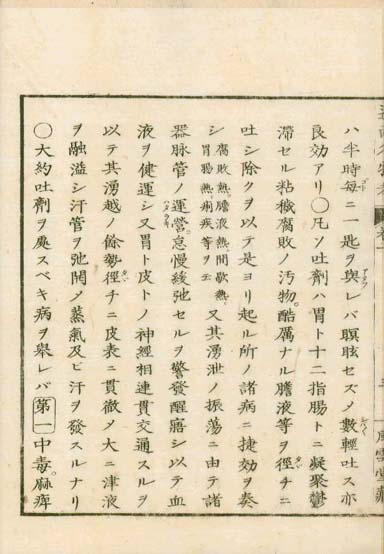 ハ半時毎ニ一匙ヲ與レバ瞑眩セズメ數輕吐ス亦
良効アリ○凡ソ吐劑ハ胃ト十二指腸トニ凝聚鬱
滯セル粘穢腐敗ノ汚物。酷厲ナル膽液等ヲ徑チニ
吐シ除クヲ以テ是ヨリ起ル所ノ諸病ニ捷効ヲ奏
シ腐敗熱膽液熱間歇熱胃腸熱痢疾等ヲ云又其湧泄ノ振蕩ニ由テ諸
器脉管ノ運營。怠慢緩弛セルヲ警發醒寤シ以テ血
液ヲ健運シ又胃ト皮トノ神經相連貫交通スルヲ
以テ其湧越ノ餘勢徑チニ皮表ニ貫徹メ大ニ津液
ヲ融溢シ汗管ヲ弛開メ蒸氣及ビ汗ヲ發スルナリ
○大約吐劑ヲ處スベキ病ヲ舉レバ第一中毒。麻痺